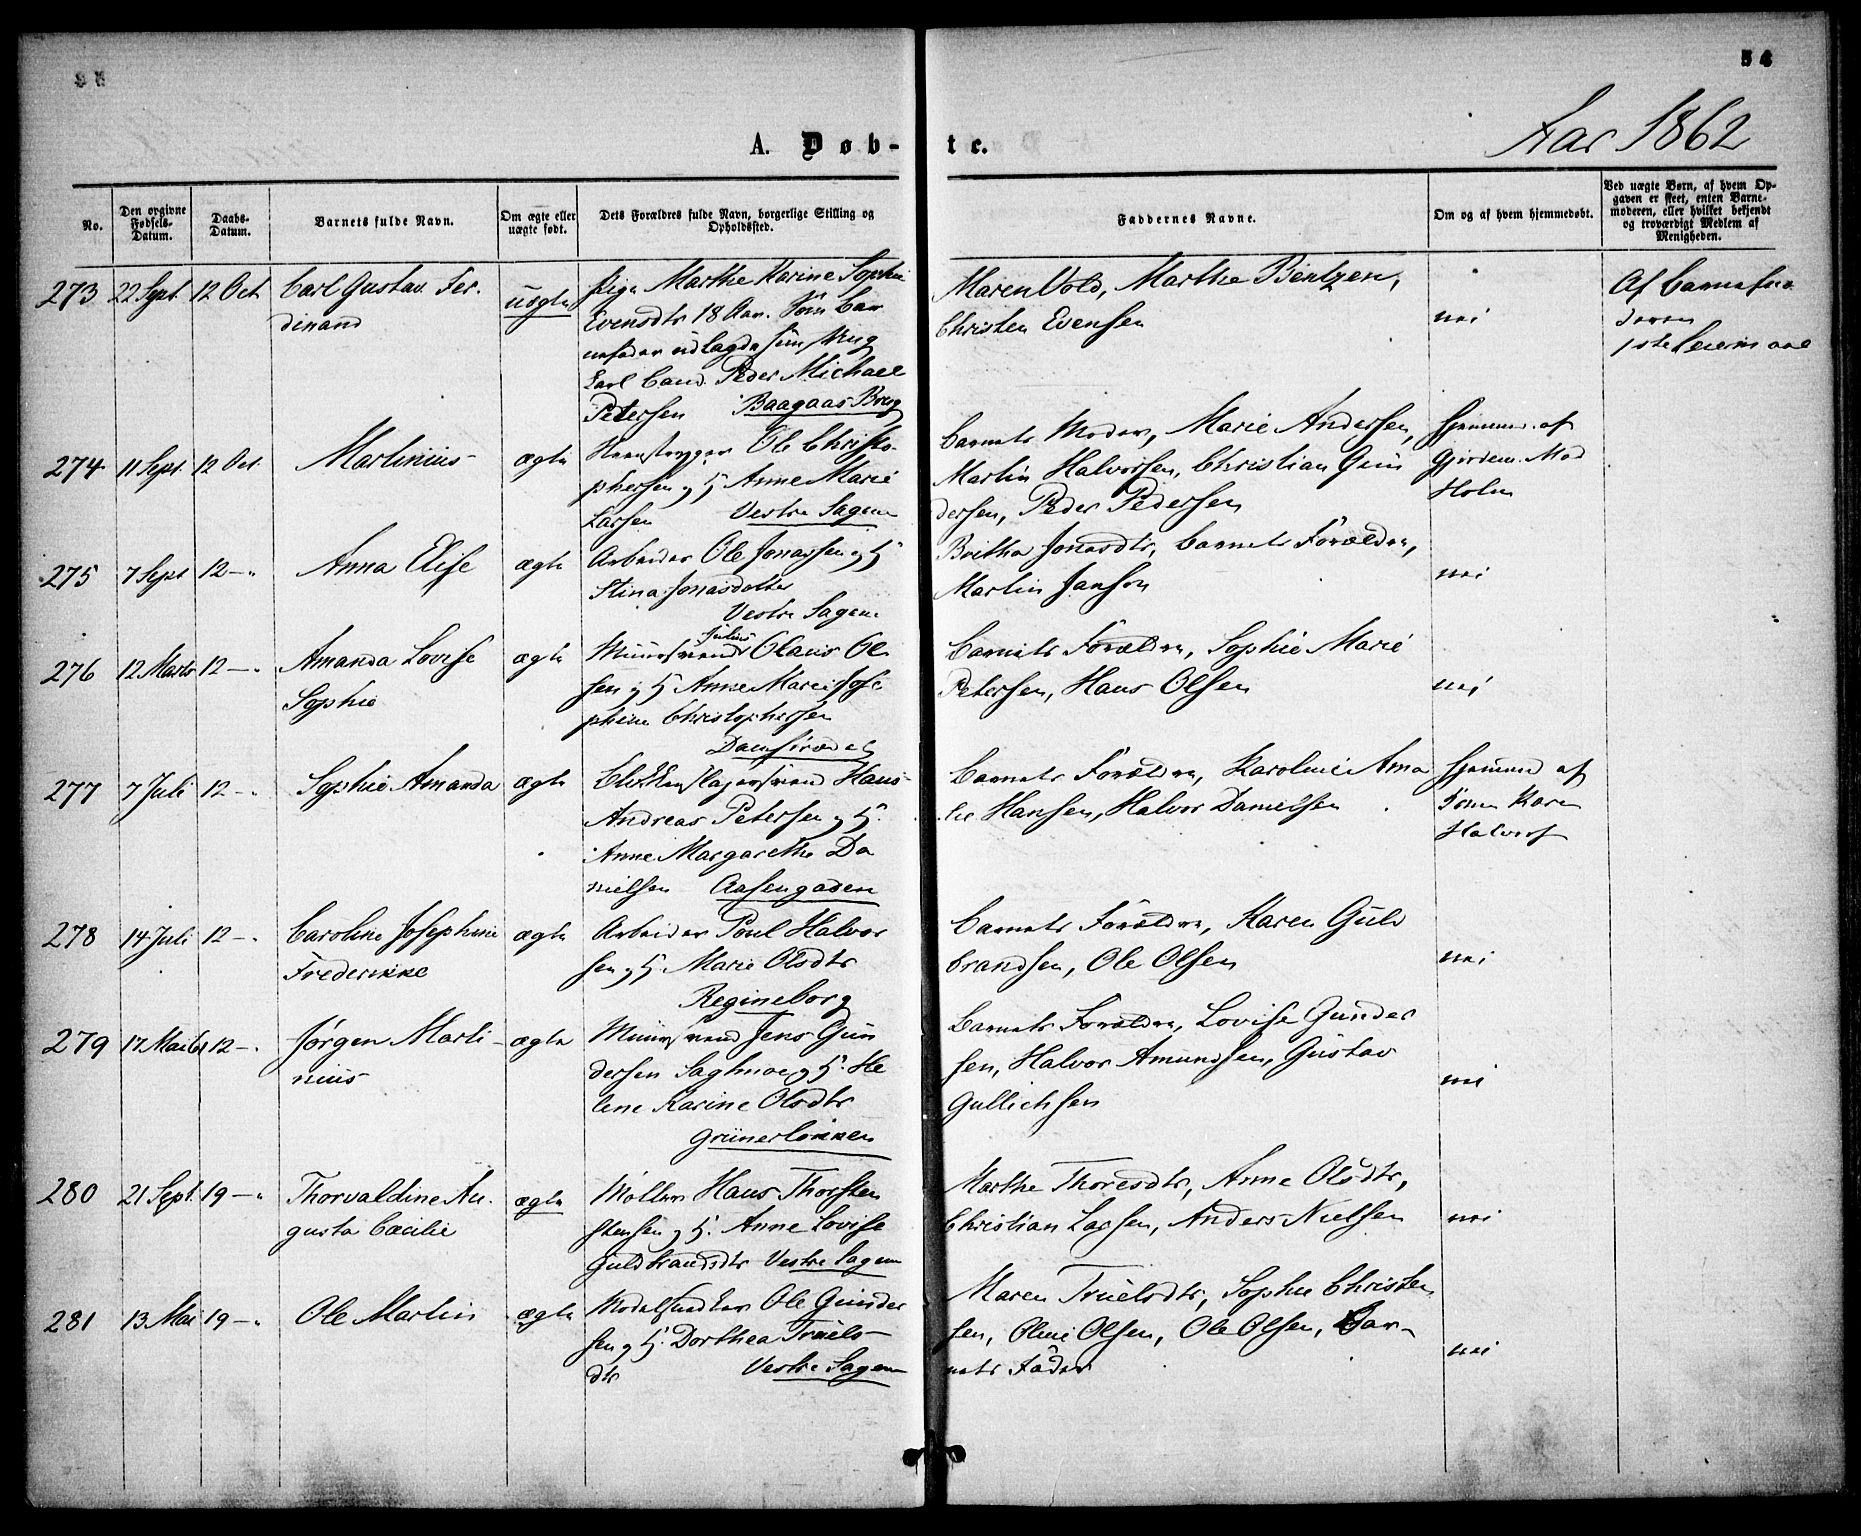 54
Aar 1862
A. Døb-
te.
No.
Den opgivne Fødsels-Datum.
Daabs-Datum.
Barnets fulde Navn.
Om ægte eller uægte født.
Dets Forældres fulde Navn, borgerlige Stilling og Opholdssted.
Faddernes Navne.
Om og af hvem hjemmedøbt.
Ved uægte Børn, af hvem Op-
gaven er skeet, enten Barne-
moderen, eller hvilket bekjendt
og troværdigt Medlem af
Menigheden.
273 22 Sept. 12 Oct. Carl Gustav Fer-
dinand
uægte
Pige Marthe Karine Sophie
Evensdtr 18 Aar. Som Bar
nefader udlagde
Carl Cand. Peder Michael
Petersen Baagaas Brug
Maren Vold, Marthe Bentzen,
Christen Evensen
nei
Af Barnefa
deren
1ste Leiermaal
274 11 Sept. 12 Oct. Martinius
ægte
Ole Christo-
phersen og H. Anne Marie
Larsen Vestre Sagene
Barnets Moder, Marie Andersen,
Martin Halvorsen, Christian Gun
dersen, Peder Pedersen
Hjemmed. af
Gjordem. Mad
Holm
275 7 Sept 12 —"
Anna Elise
ægte
Arbeider Ole Jonassen og H
Stina Jonasdotter
Vestre Sagene
Britha Jonasdtr, Barnets Forældre,
Martin Janson
nei
276 12 Marts 12 —"
Amanda Lovise
Sophie
ægte
Julius
Muursvend Olaus Ol
sen og H Anne Marie Jose
phine Christophersen
Damstrædet
Barnets Forældre, Sophie Marie
Petersen, Hans Olsen
nei
277 7 Juli 12 —"
Sophie Amanda
ægte
Blikkenslagersvend Hans
Andreas Petersen og H.
Anne Margarethe Da
nielsen Aasengaden
Barnets Forældre, Karoline Ama
lie Hansen, Halvor Danielsen
Hjemmed af
Karen
Halvors
278 14 Juli 12 —"
Caroline Josephine
Frederikke
ægte
Arbeider Poul Halvor
sen og H. Marie Olsdtr
Regineborg
Barnets Forældre, Karen Guld
brandsen, Ole Olsen
nei
279 17 Mai 61 12 —"
Jørgen Marti-
nius
ægte
Muursvend Jens Gun
dersen Saghuse og H. He
lene Karine Olsdtr
Grünerløkken
Barnets Forældre, Lovise Gunder
sen, Halvor Amundsen, Gustav
Gullichsen
nei
280 21 Sept. 19 —"
Thorvaldine Au-
gusta Cæcilie
ægte
Møller Hans Thorsten
stensen og H. Anne Lovise
Guldbrandsdtr Vestre Sagene
Marthe Thoresdtr, Anne Olsdtr,
Christian Larsen, Anders Nielsen
nei
281 13 Mai 19 —"
Ole Martin
ægte
Modelsnedker Ole Gunder
sen og H. Dorthea Truels-
dtr Vestre Sagene
Maren Truelsdtr, Sophie Christen
sen, Oline Olsen, Ole Olsen, Bar-
nets Fader
nei